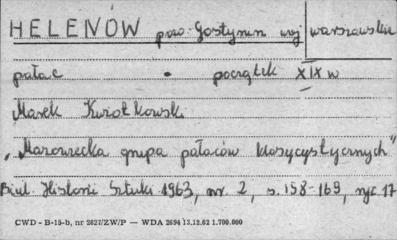 HELENÓW pow. Gostynin woj warszawskie
pałac • początek XIX w
Marek Kwiatkowski
"Mazowiecka grupa pałaców klasycystycznych"
Biul. Historii Sztuki 1963, nr. 2, s. 158-169, ryc 17
CWD - B-15-b, nr 2827/ZW/P — WDA 2694 13.12.62 1.700.000